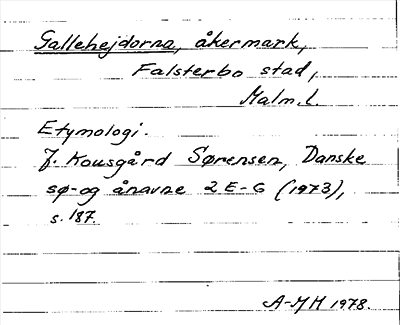 Gallehejdorna, åkermark,
Falsterbo stad,
Malm. l.
Etymologi.
J. Kousgård Sørensen, Danske
sø- og ånavne 2 E-G (1973),
s. 187.
A-MH 1978.